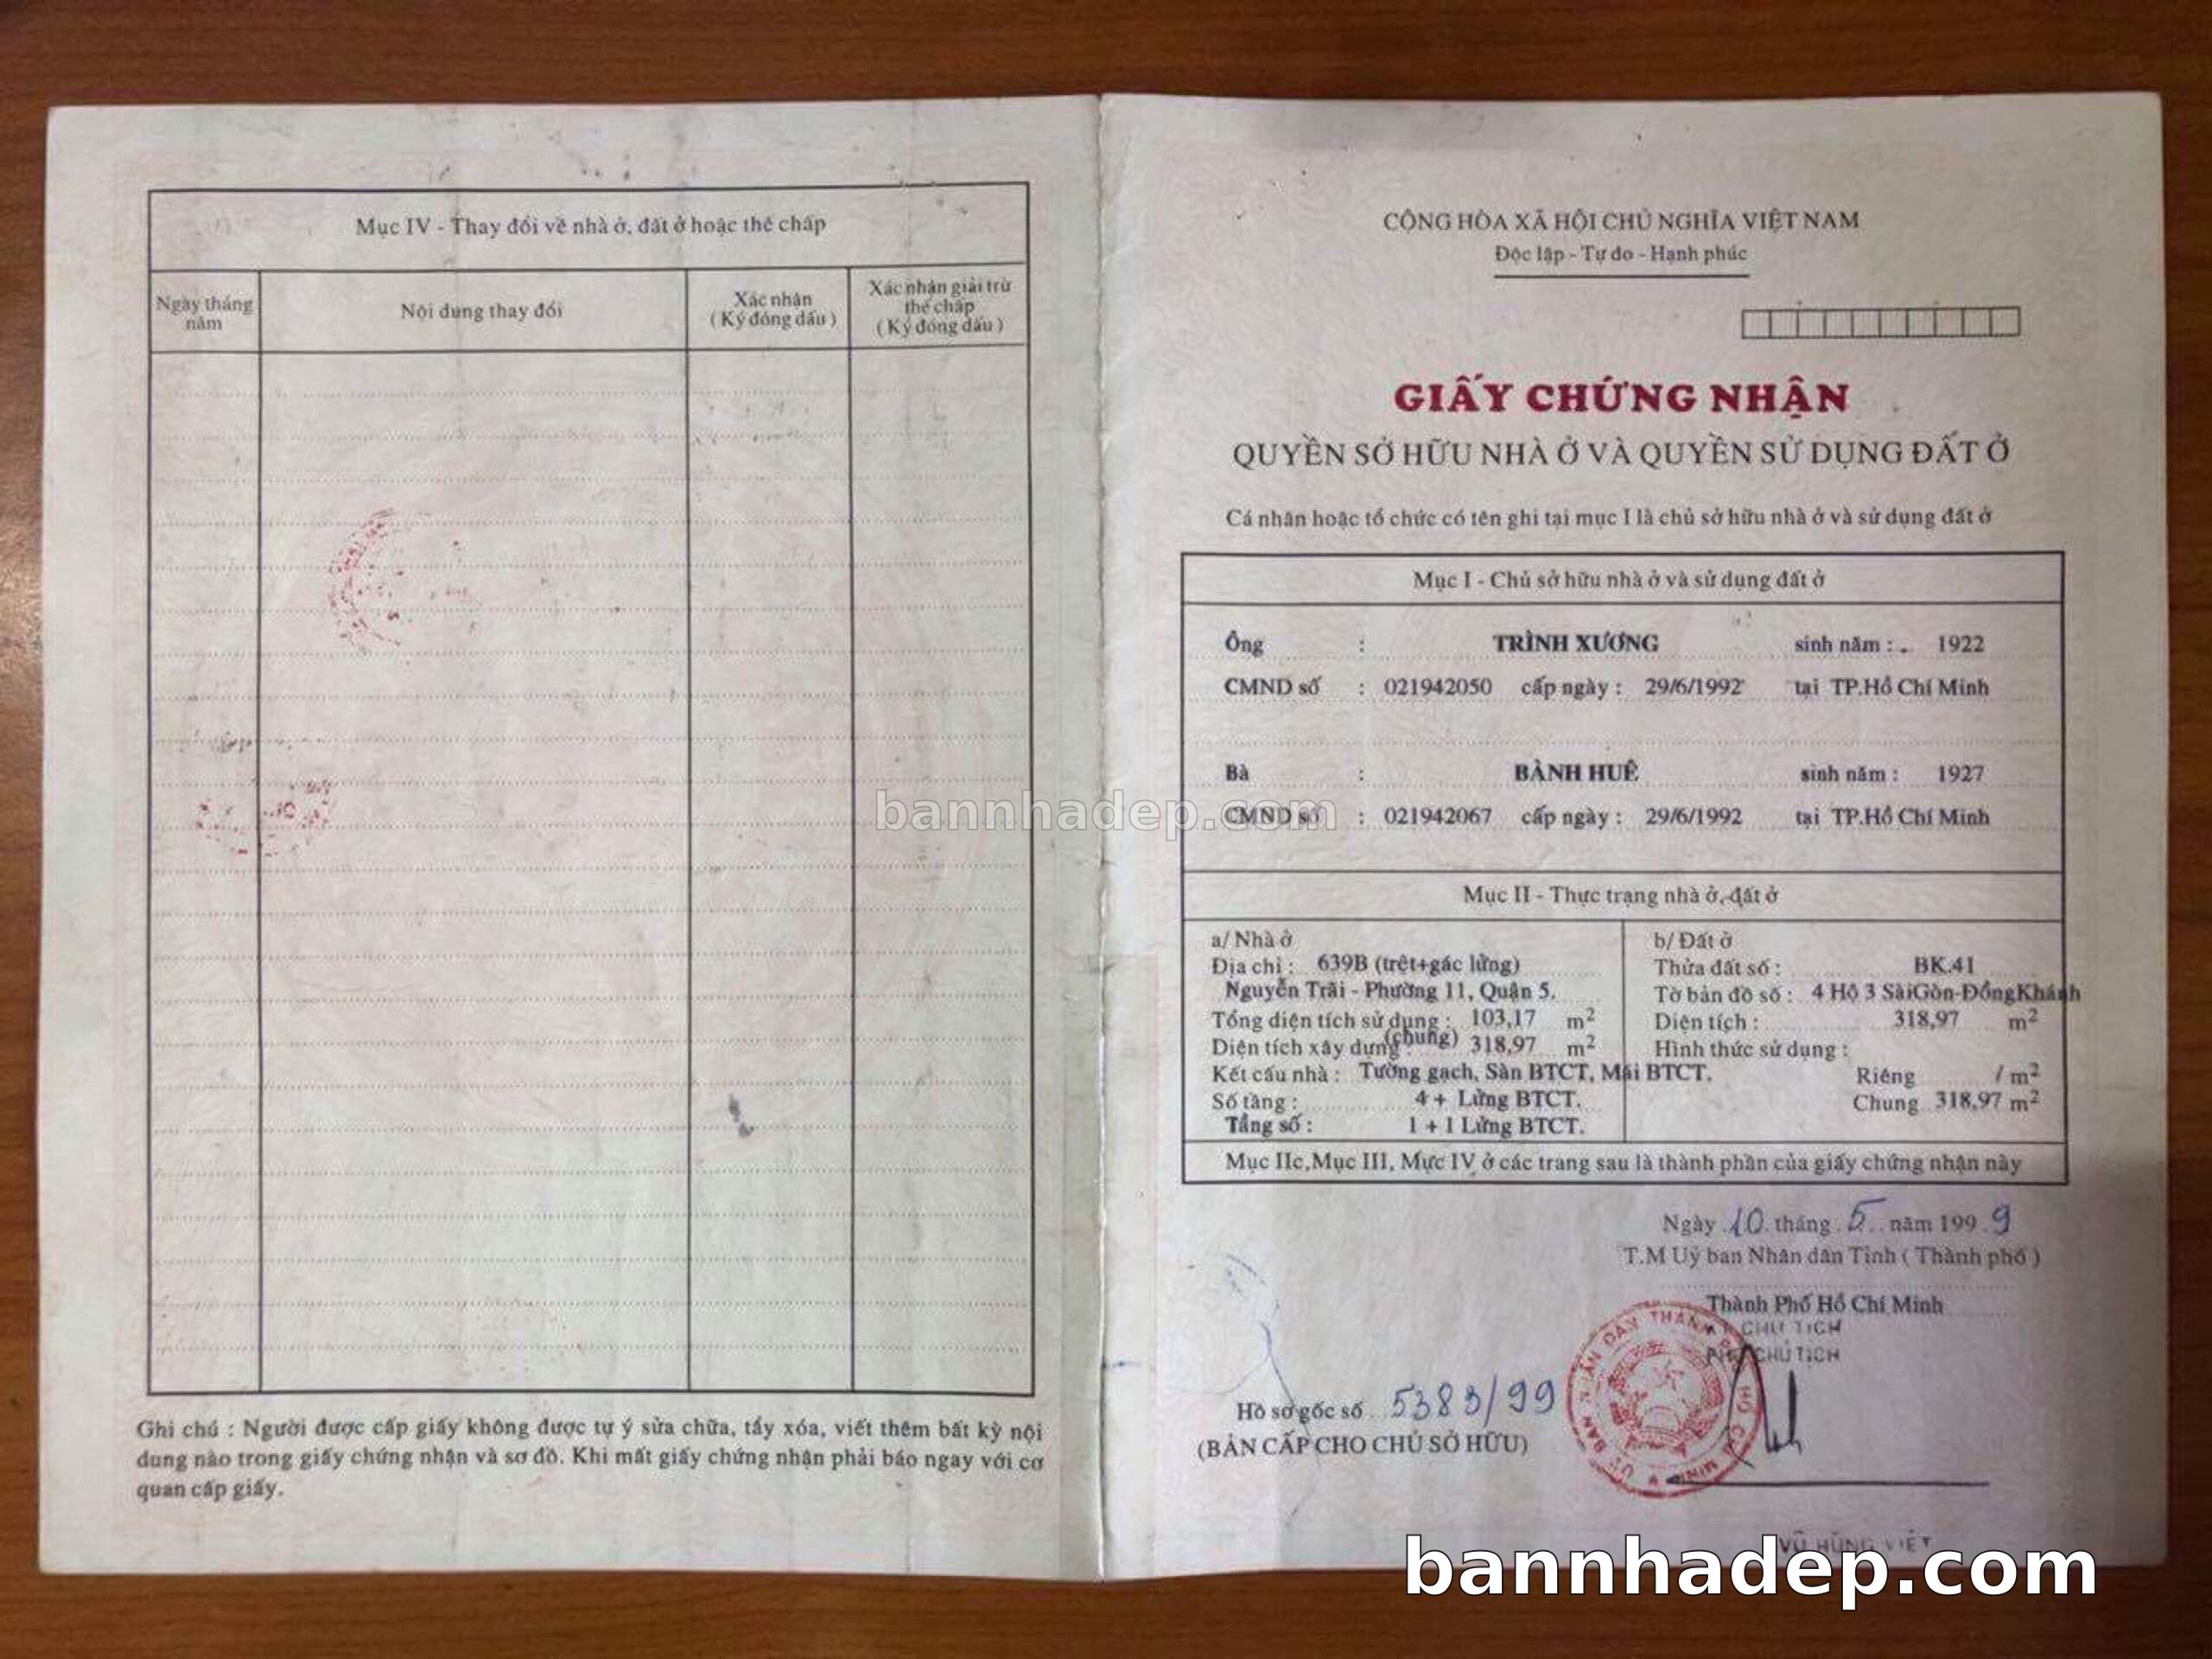 Mục IV - Thay đổi về nhà ở, đất ở hoặc thế chấp
Ngày tháng năm
Nội dung thay đổi
Xác nhận
( Ký đóng dấu )
Xác nhận giải trừ
thế chấp
( Ký đóng dấu )
Ghi chú : Người được cấp giấy không được tự ý sửa chữa, tẩy xóa, viết thêm bất kỳ nội
dung nào trong giấy chứng nhận và sơ đồ. Khi mất giấy chứng nhận phải báo ngay với cơ
quan cấp giấy.
CỘNG HÒA XÃ HỘI CHỦ NGHĨA VIỆT NAM
Độc lập - Tự do - Hạnh phúc
GIẤY CHỨNG NHẬN
QUYỀN SỞ HỮU NHÀ Ở VÀ QUYỀN SỬ DỤNG ĐẤT Ở
Cá nhân hoặc tổ chức có tên ghi tại mục I là chủ sở hữu nhà ở và sử dụng đất ở
Mục I - Chủ sở hữu nhà ở và sử dụng đất ở
Ông : TRÌNH XƯƠNG sinh năm : 1922
CMND số : 021942050 cấp ngày : 29/6/1992 tại TP.Hồ Chí Minh
Bà : BÀNH HUÊ sinh năm : 1927
CMND số : 021942067 cấp ngày : 29/6/1992 tại TP.Hồ Chí Minh
bannhadep.com
Mục II - Thực trạng nhà ở, đất ở
a/ Nhà ở
Địa chỉ : 639B (trệt+gác lửng)
Nguyễn Trãi - Phường 11, Quận 5.
Tổng diện tích sử dụng : 103,17 m²
Diện tích xây dựng : (chung) 318,97 m²
Kết cấu nhà : Tường gạch, Sàn BTCT, Mái BTCT.
Số tầng : 4 + Lửng BTCT.
Tầng số : 1 + 1 Lửng BTCT.
b/ Đất ở
Thửa đất số : BK.41
Tờ bản đồ số : 4 Hộ 3 SàiGòn-ĐồngKhánh
Diện tích : 318,97 m²
Hình thức sử dụng :
Riêng / m²
Chung 318,97 m²
Mục IIc,Mục III, Mực IV ở các trang sau là thành phần của giấy chứng nhận này
Ngày 10 tháng 5 năm 1999
T.M Uỷ ban Nhân dân Tỉnh ( Thành phố )
Thành Phố Hồ Chí Minh
CHỦ TỊCH
PHÓ CHỦ TỊCH
Hồ sơ gốc số 5383/99
(BẢN CẤP CHO CHỦ SỞ HỮU)
ỦY BAN NHÂN DÂN THÀNH PHỐ HỒ CHÍ MINH
VŨ HÙNG VIỆT
bannhadep.com